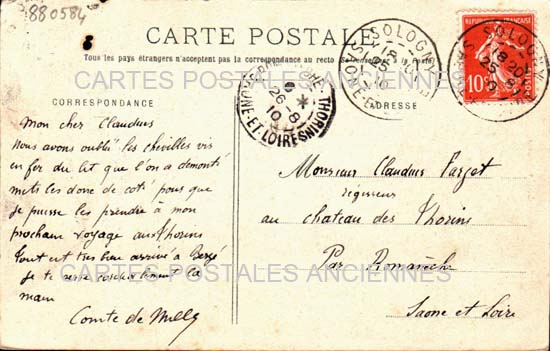 880584
CARTE POSTALE
Tous les pays étrangers n'acceptent pas la correspondance au recto
CARTES POSTALES ANCIENNES
CORRESPONDANCE
ADRESSE
REPUBLIQUE FRANÇAISE
10
POSTES
SOLOGNY
18
SOLOGNY
18 20
26
ROMANECHE THORINS
26 - 8
10
SAONE-ET-LOIRE
Mon cher Claudius
Nous avons oublié les chevilles vis
en fer du lit que l'on a démonté
mets les donc de coté pour que
je puisse les prendre à mon
prochain voyage aux Thorins
Tout est très bien arrivé à Bergé
Je te serre cordialement la
main
Comte de Milly
Monsieur Claudius Farget
régisseur
au chateau des Thorins
Par Romanèche
Saone et Loire
CARTES POSTALES ANCIENNES